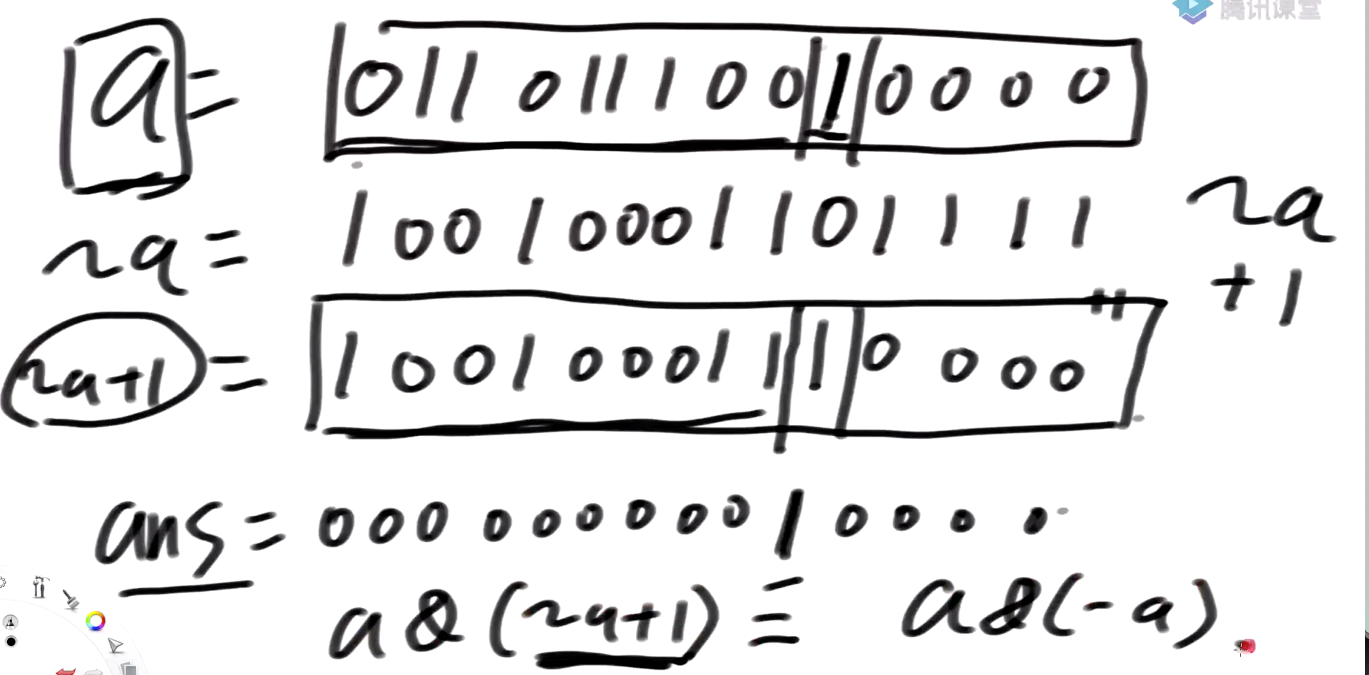 腾讯课堂
a = 011 011110010000
~a = 100100011011111
~a
+1
~a+1 = 100100011 10000
ans = 000 000000 10000
a & (~a+1) = a & (-a)